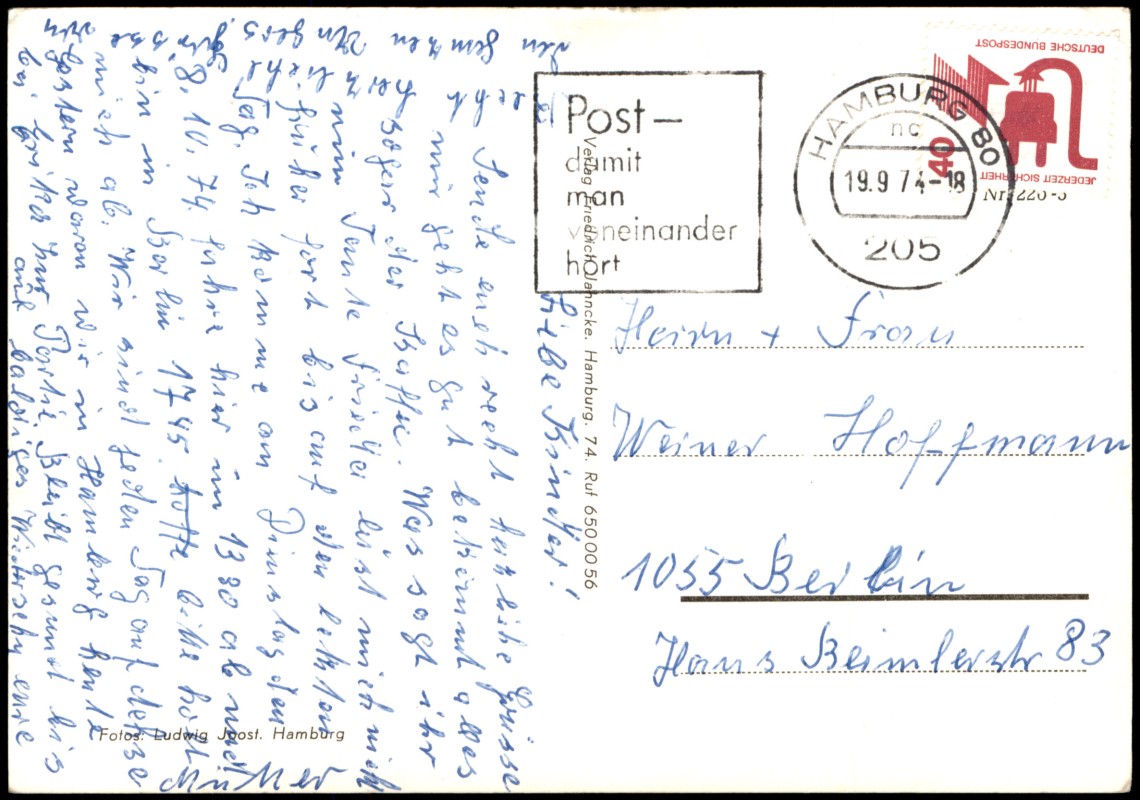 DEUTSCHE BUNDESPOST
JEDERZEIT SICHERHEIT
40
HAMBURG 80
nc
19.9.74-18
205
Nr. 226-3
Post–
damit
man
voneinander
hört
Verlag Friedrich Jahncke. Hamburg. 74. Ruf 6500056
Fotos: Ludwig Joost. Hamburg
Herrn + Frau
Werner Hoffmann
1055 Berlin
Hans Beimlerstr 83
Liebe Kinder!
Sende euch recht herzliche Grüsse
mir geht es gut bekommt alles
sogar der Kaffee. Was sagt ihr
nun Tante Friedel läst mich nicht
früher fort bis auf den letzten
Tag. Ich komme am Dienstag den
8. 10. 74. fahre hier um 13 30 ab und
bin in Berlin 17 45 bitte holt
mich ab. Wir sind jeden Tag auf
gestern waren wir in Hamburg heute
bei zur Bleibt gesund bis
auf baldiges Wiedersehn eure
Mutter
recht herzliche Grüsse
den ganzen